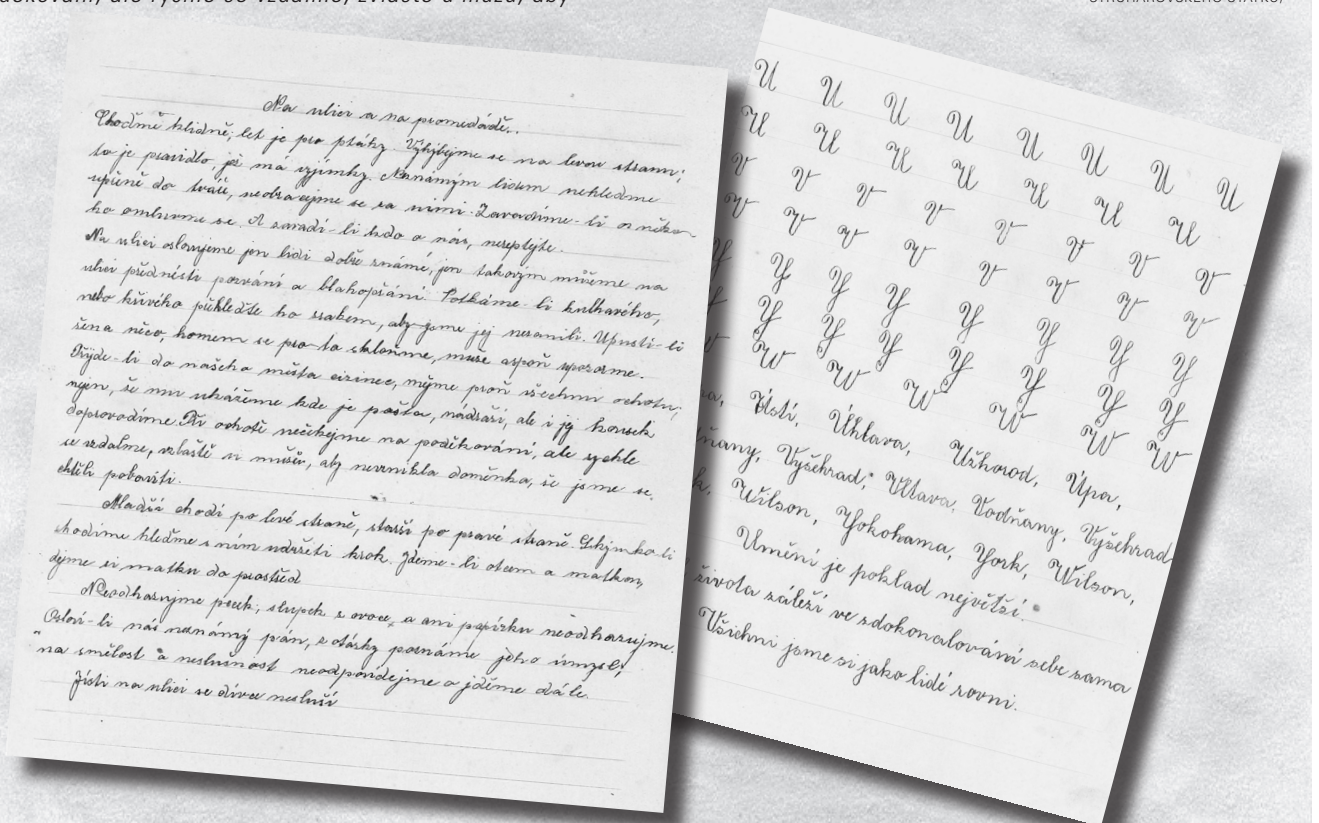 ale rychle se vzdalme, zvláště u mužů, aby
Na ulici a na promedádě.
Choďmě klidně, let je pro ptáky. Vyhýbejme se na levou stranu;
to je pravidlo jež má vyjímky. Neznámým lidem nehleďme
upřeně do tváře, neobracejme se za nimi. Zavadíme-li o něko-
ho omluvme se. A zavadí-li kdo o nás, nereptejte.
Na ulici oslovujeme jen lidi dobře známé, jen takovým můžeme na
ulici přednésti pozvání a blahopřání. Potkáme-li kulhavého,
nebo křivého přehleďte ho zrakem, aby jsme jej neranili. Upustí-li
žena něco, honem se pro to skloňme, muže aspoň upozorme.
Přijde-li do našeho města cizinec, mějme proň všechnu ochotu;
nejen, že mu ukážeme kde je pošta, nádraží, ale i jej kousek
doprovodíme. Při ochotě nečekejme na poděkování, ale rychle
se vzdalme, zvlaště u mužův, aby nevznikla doměnka, že jsme se
chtěli pobaviti.
Mladší chodí po levé straně, starší po pravé straně. S kýmko-li
chodíme hleďme s ním udržeti krok. Jdeme-li otcem a matkou,
dejme si matku do prostřed
Neodhazujme pecek, slupek z ovoce, a ani papírku neodhazujme.
Osloví-li nás neznámý pán, z otázky poznáme jeho úmysl;
na smělost a neslušnost neodpovídejme a jděme dále.
Jísti na ulici se dívce nesluší
U U U U U U U U
U U U U U U U
V V V V V V V V
V V V V V V V V
Y Y Y Y Y Y Y Y
Y Y Y Y Y Y Y Y
W W W W W W W
Ústí, Úhlava, Užhorod, Úpa,
Vyšehrad, Vltava, Vodňany, Vyšehrad
Wilson, Yokohama, York, Wilson,
Umění je poklad největší.
života záleží ve zdokonalování sebe sama
Všichni jsme si jako lidé rovni.